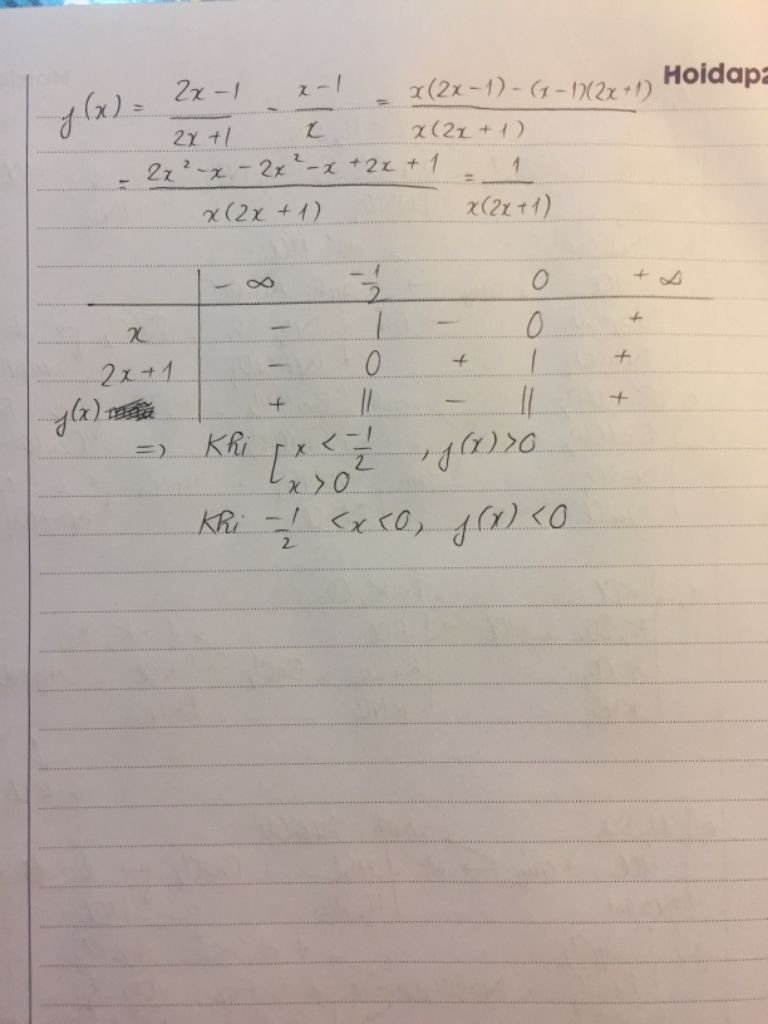 Hoidap2
f(x) = \frac{2x-1}{2x+1} - \frac{x-1}{x} = \frac{x(2x-1)-(x-1)(2x+1)}{x(2x+1)}
= \frac{2x^2-x-2x^2-x+2x+1}{x(2x+1)} = \frac{1}{x(2x+1)}
-∞ \frac{-1}{2} 0 +∞
x - | - 0 +
2x+1 - 0 + | +
f(x) + || - || +
=> Khi [x < \frac{-1}{2} , f(x)>0
x>0
Khi \frac{-1}{2} <x<0, f(x)<0